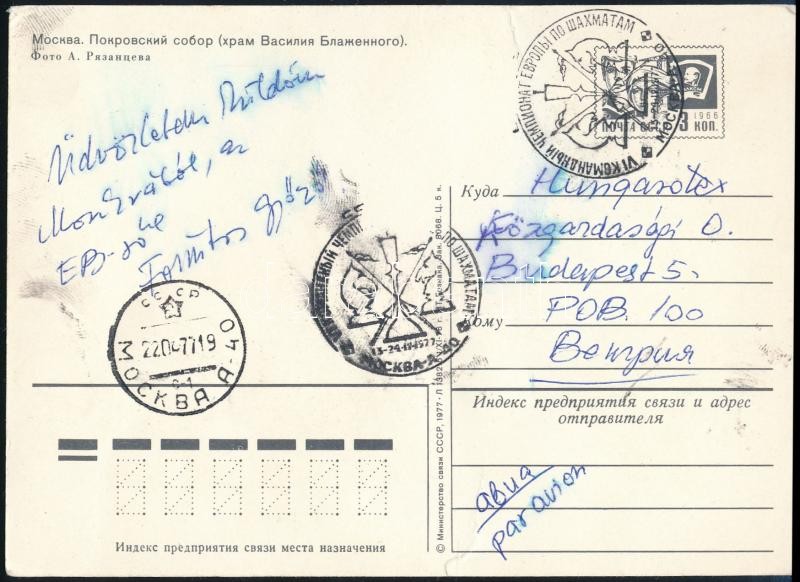 Москва. Покровский собор (храм Василия Блаженного).
Фото А. Рязанцева
Üdvözletem küldöm
Moszkvából, az
EB-ről
Győző
VI КОМАНДНЫЙ ЧЕМПИОНАТ ЕВРОПЫ ПО ШАХМАТАМ
МОСКВА
1966
ПОЧТА СССР 3 КОП.
ПО ШАХМАТАМ
13-24.IV.1977
МОСКВА-А-40
СССР
22047719
МОСКВА А-40
Куда
Hungarotex
Közgazdasági O.
Budapest 5.
Кому
POB. 100
Венгрия
Индекс предприятия связи и адрес
отправителя
авиа
par avion
Индекс предприятия связи места назначения
© Министерство связи СССР, 1977
Ц. 5 к.